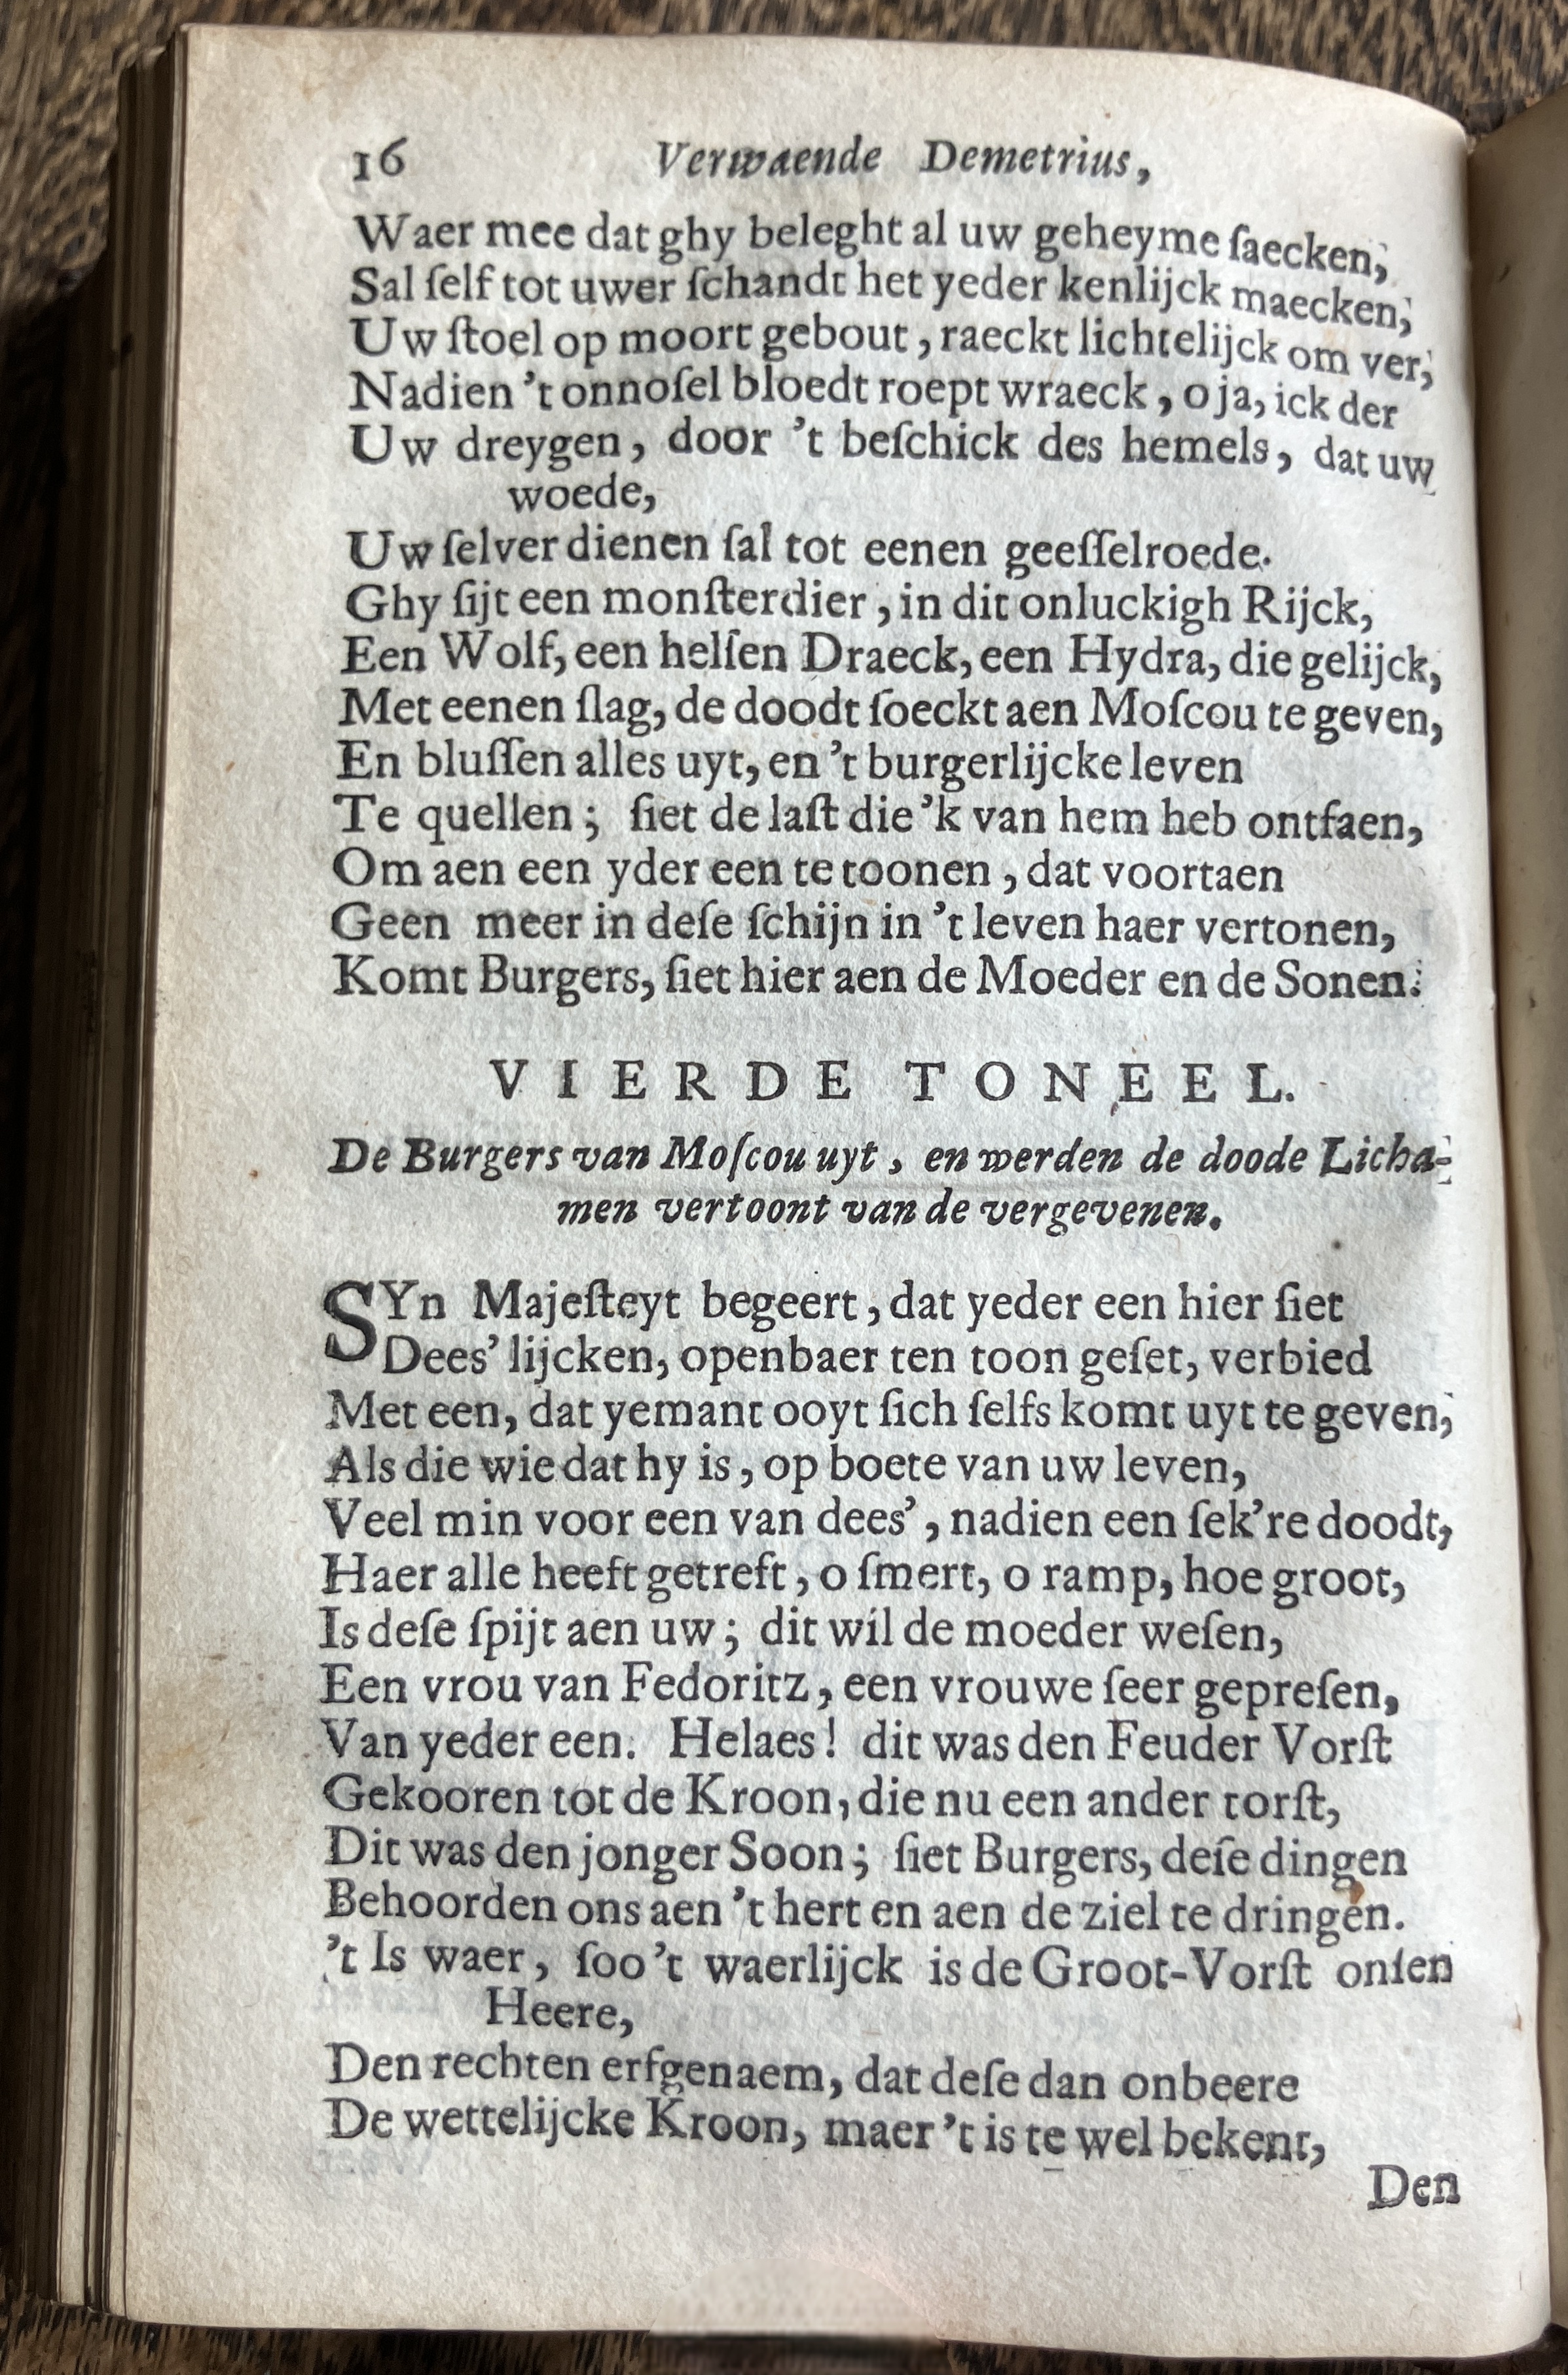 16 Verwaende Demetrius,
Waer mee dat ghy beleght al uw geheyme ſaecken,
Sal ſelf tot uwer ſchandt het yeder kenlijck maecken;
Uw ſtoel op moort gebout, raeckt lichtelijck om ver,
Nadien 't onnoſel bloedt roept wraeck, o ja, ick der
Uw dreygen, door 't beſchick des hemels, dat uw
woede,
Uw ſelver dienen ſal tot eenen geeſſelroede.
Ghy ſijt een monſterdier, in dit onluckigh Rijck,
Een Wolf, een helſen Draeck, een Hydra, die gelijck,
Met eenen ſlag, de doodt ſoeckt aen Moſcou te geven,
En bluſſen alles uyt, en 't burgerlijcke leven
Te quellen; ſiet de laſt die 'k van hem heb ontfaen,
Om aen een yder een te toonen, dat voortaen
Geen meer in deſe ſchijn in 't leven haer vertonen,
Komt Burgers, ſiet hier aen de Moeder en de Sonen.
VIERDE TONEEL.
De Burgers van Moſcou uyt, en werden de doode Licha-
men vertoont van de vergevenen.
SYn Majeſteyt begeert, dat yeder een hier ſiet
Dees' lijcken, openbaer ten toon geſet, verbied
Met een, dat yemant ooyt ſich ſelfs komt uyt te geven,
Als die wie dat hy is, op boete van uw leven,
Veel min voor een van dees', nadien een ſek're doodt,
Haer alle heeft getreft, o ſmert, o ramp, hoe groot,
Is deſe ſpijt aen uw; dit wil de moeder weſen,
Een vrou van Fedoritz, een vrouwe ſeer gepreſen,
Van yeder een. Helaes! dit was den Feuder Vorſt
Gekooren tot de Kroon, die nu een ander torſt,
Dit was den jonger Soon; ſiet Burgers, deſe dingen
Behoorden ons aen 't hert en aen de ziel te dringen.
't Is waer, ſoo 't waerlijck is de Groot-Vorſt onſen
Heere,
Den rechten erfgenaem, dat deſe dan onbeere
De wettelijcke Kroon, maer 't is te wel bekent,
Den